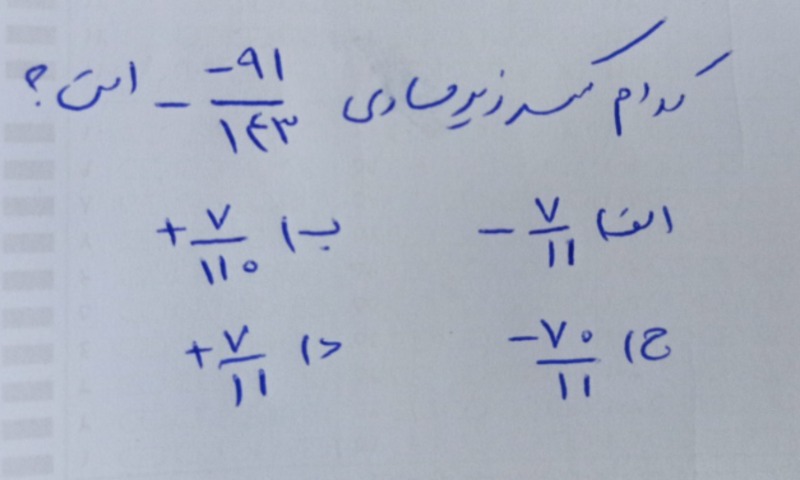 کدام کسر زیر مساوی - -۹۱/۱۴۳ است؟
الف) - ۷/۱۱ ب) + ۷/۱۱۰
ج) -۷۰/۱۱ د) + ۷/۱۱